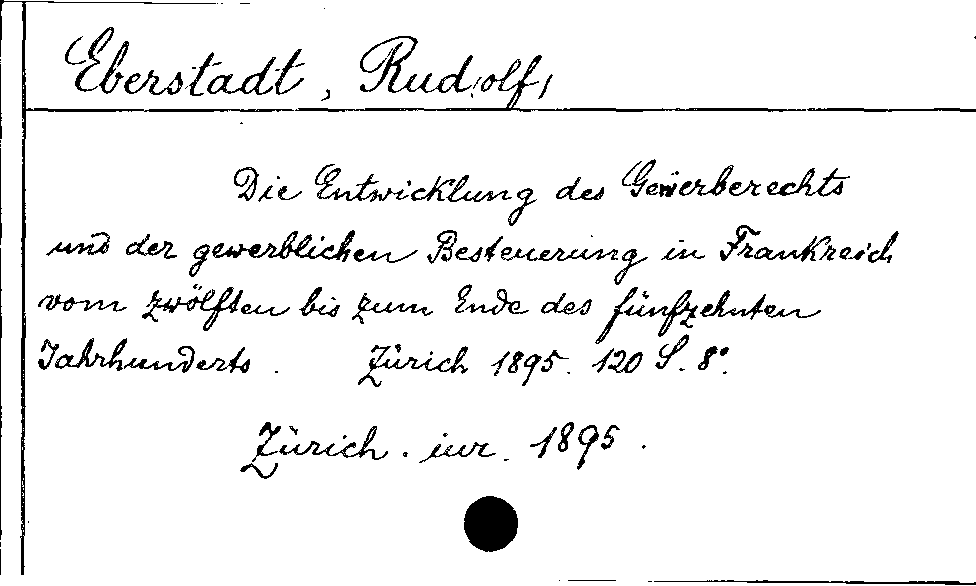 Eberstadt, Rudolf,
Die Entwicklung des Gewerberechts
und der gewerblichen Besteuerung in Frankreich
vom zwölften bis zum Ende des fünfzehnten
Jahrhunderts. Zürich 1895. 120 S. 8°.
Zürich. iur. 1895.